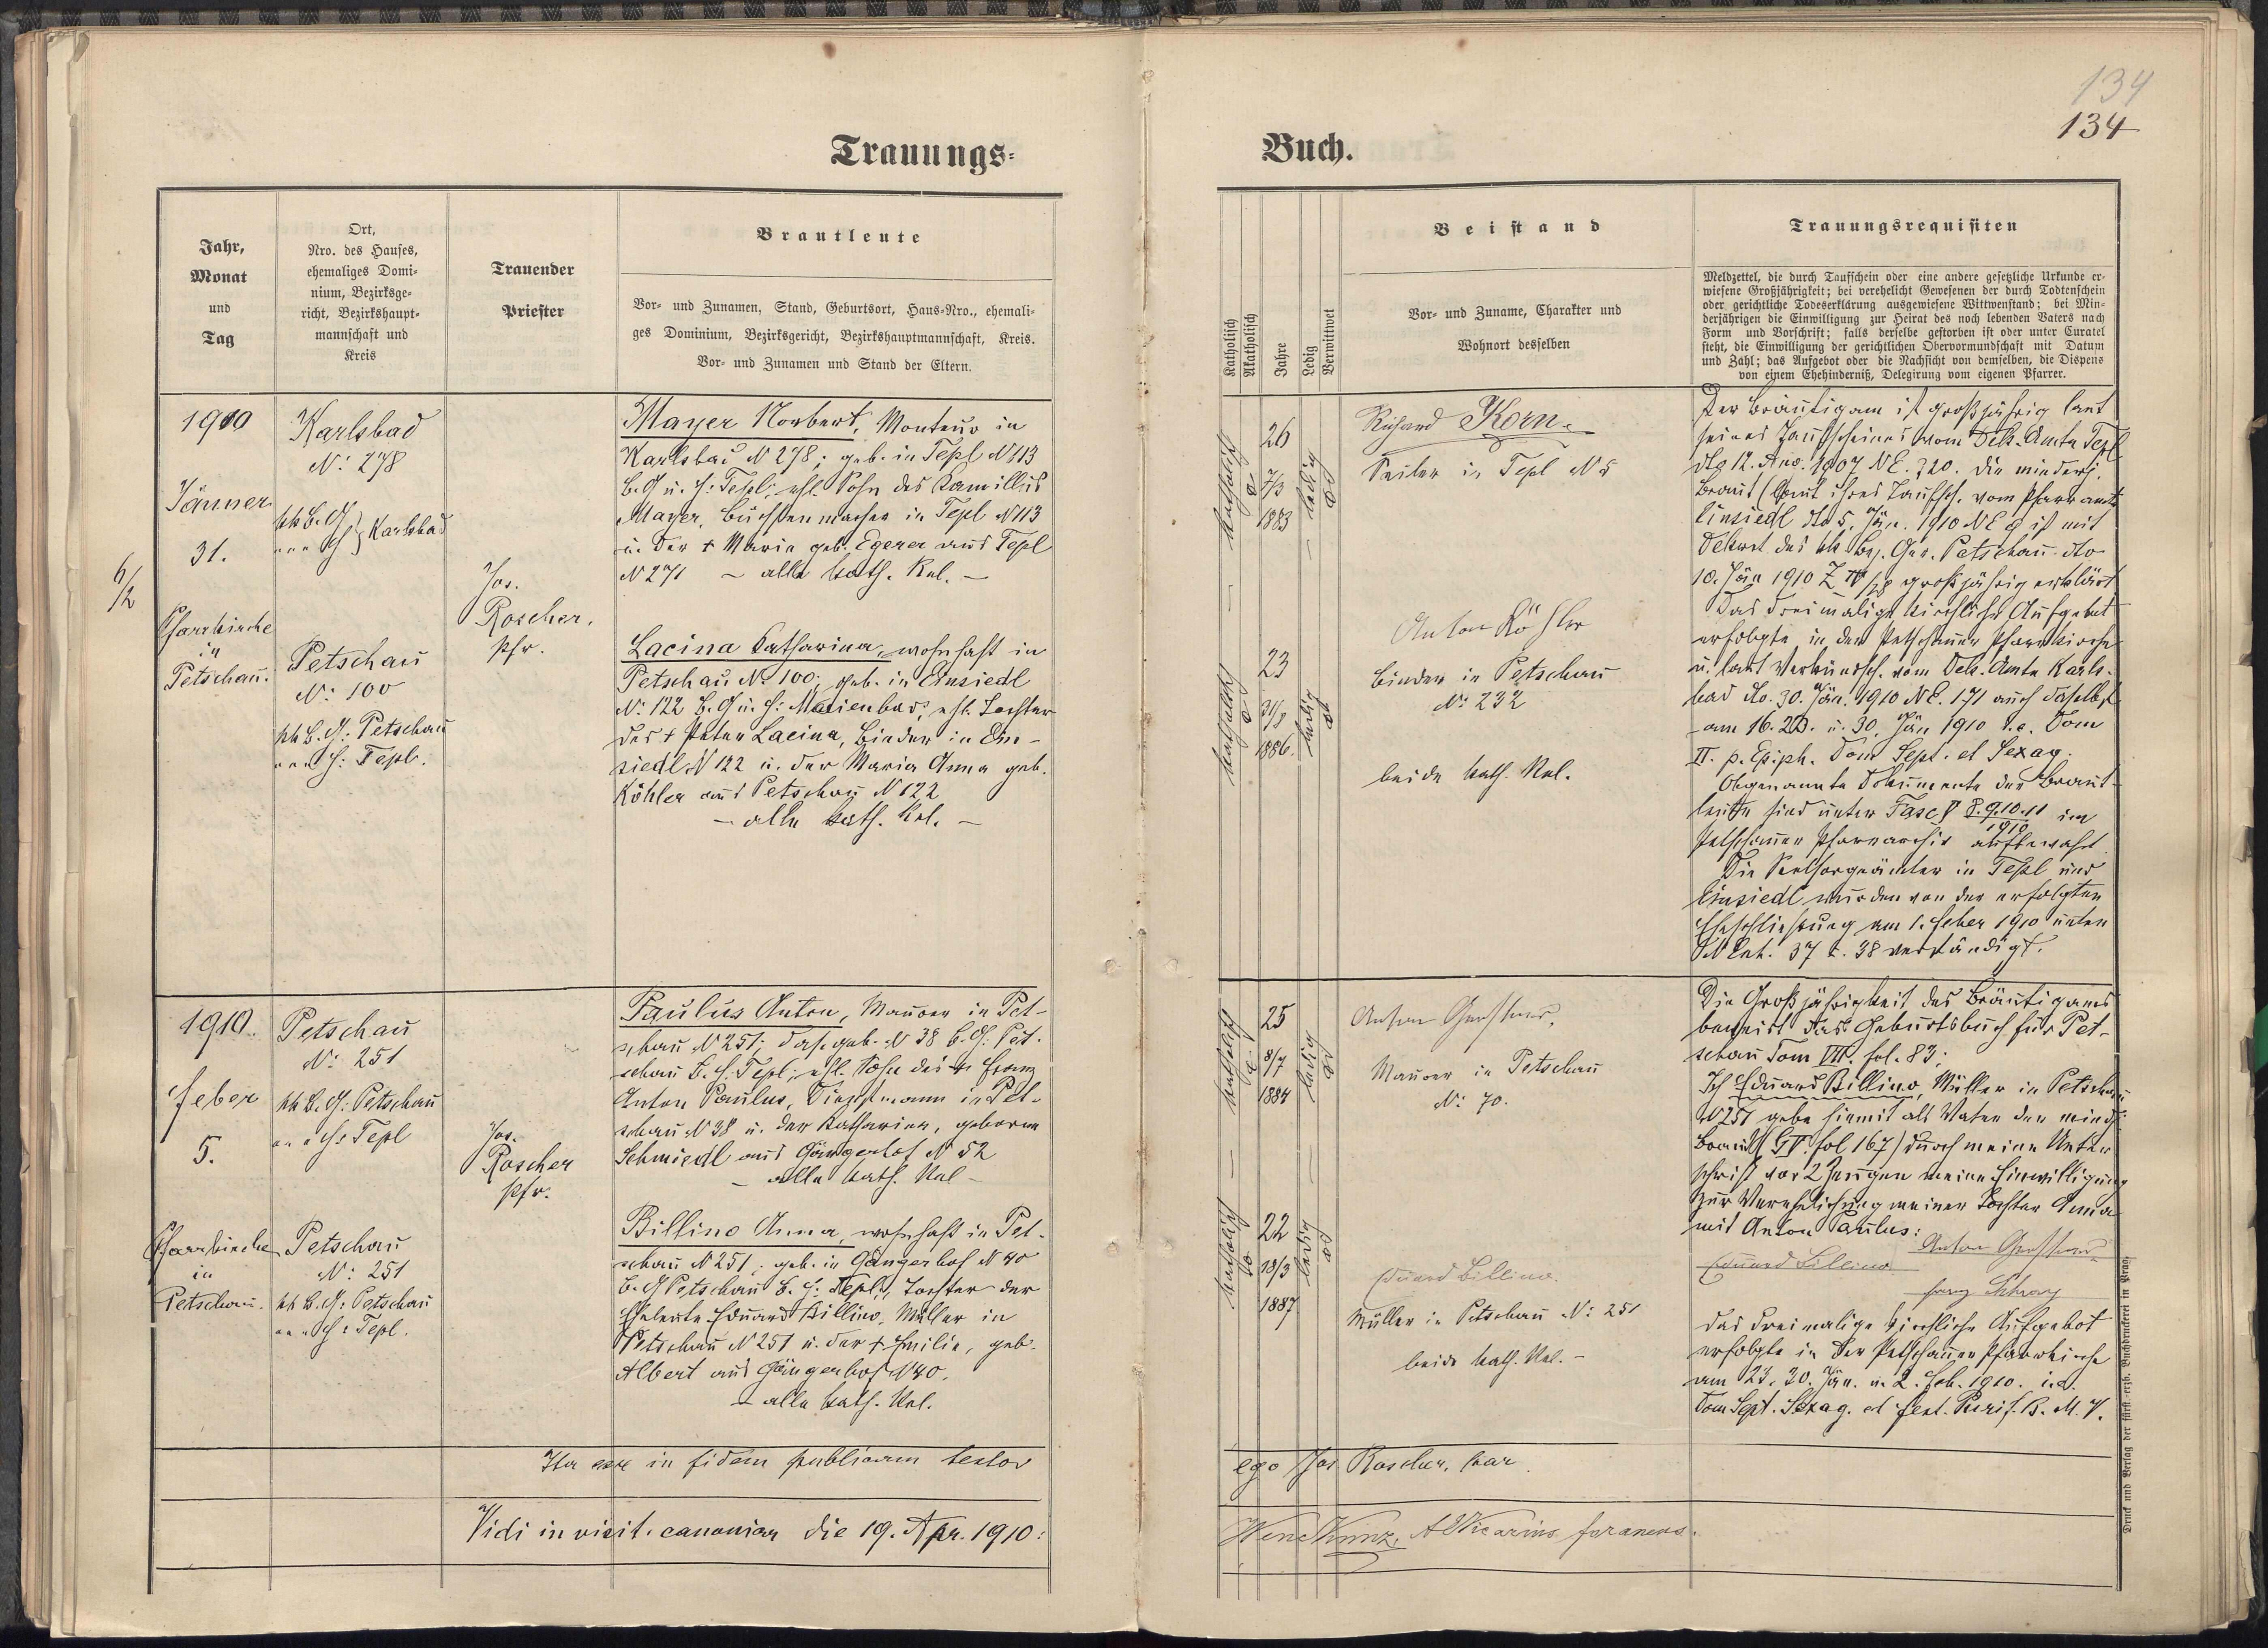 134
134
Trauungs-
Buch.
Jahr,
Monat
und
Tag
Ort,
Nro. des Hauses,
ehemaliges Domi-
nium, Bezirksge-
richt, Bezirkshaupt-
mannschaft und
Kreis
Trauender
Priester
Brautleute
Vor- und Zunamen, Stand, Geburtsort, Haus-Nro., ehemali-
ges Dominium, Bezirksgericht, Bezirkshauptmannschaft, Kreis.
Vor- und Zunamen und Stand der Eltern.
Katholisch
Akatholisch
Jahre
Ledig
Verwittwet
Beistand
Vor- und Zuname, Charakter und
Wohnort desselben
Trauungsrequisiten
Meldzettel, die durch Taufschein oder eine andere gesetzliche Urkunde er-
wiesene Großjährigkeit; bei verehelicht Gewesenen der durch Todtenschein
oder gerichtliche Todeserklärung ausgewiesene Wittwenstand; bei Min-
derjährigen die Einwilligung zur Heirat des noch lebenden Vaters nach
Form und Vorschrift; falls derselbe gestorben ist oder unter Curatel
steht, die Einwilligung der gerichtlichen Obervormundschaft mit Datum
und Zahl; das Aufgebot oder die Nachsicht von demselben, die Dispens
von einem Ehehinderniß, Delegirung vom eigenen Pfarrer.
1910
Jänner
31.
6/2
Pfarrkirche
in
Petschau.
Karlsbad
N: 278
kk B. G. } Karlsbad
Petschau
N: 100
kk B. G: Petschau
H: Tepl.
Jos.
Roscher,
Pfr.
Mayer Norbert, Monteur in
Karlsbad N 278; geb. in Tepl N 113
B. G u. H: Tepl; ehl. Sohn des Kamillus
Mayer, Büchsenmacher in Tepl N 113
u. der + Maria geb. Egerer aus Tepl
N 271 – alle kath. Rel. –
Lacina Katharina, wohnhaft in
Petschau N: 100; geb. in Einsiedl
N: 122 B. G u. H: Marienbad, ehl. Tochter
des + Peter Lacina, Binder in Ein-
siedl N 122 u. der Maria Anna geb.
Köhler aus Petschau N 122
– alle kath. Rel. –
katholisch
26
7/3
1883
ledig
katholisch
23
31/8
1886.
ledig
Richard Korn.
Seiler in Tepl N 5
Anton Köhler
Binder in Petschau
N: 232
beide kath. Rel.
Der Bräutigam ist großjährig laut
seines Taufscheines vom Dek. Amte Tepl
dto 12. Aug. 1907 NE. 320. Die minderj.
Braut (laut ihres Taufsch. vom Pfarramte
Einsiedl dto 5. Jän. 1910 NE 9 ist mit
Dekret des kk Bez. Ger. Petschau dto
10. Jän 1910 Z großjährig erklärt
Das dreimalige kirchliche Aufgebot
erfolgte in der Petschauer Pfarrkirche
u. laut Verkündsch. vom Dek. Amte Karls-
bad dto. 30. Jän. 1910 NE. 171 auch daselbst
am 16. 23. u. 30. Jän 1910 i. e. Dom
II. p. Epiph. Dom Sept. et Sexag.
Obgenannte Dokumente der Braut-
leute sind unter Fasc V 8.9.10.11/1910 im
Petschauer Pfarrarchiv aufbewahrt.
Die Seelsorgeämter in Tepl und
Einsiedl wurden von der erfolgten
Eheschließung am 1. Feber 1910 unter
N Exh. 37 u. 38 verständigt.
1910.
Feber
5.
Pfarrkirche
in
Petschau.
Petschau
N: 251
kk B. G: Petschau
H: Tepl
Petschau
N: 251
kk B. G: Petschau
H: Tepl.
Jos.
Roscher
Pfr.
Paulus Anton, Maurer in Pet-
schau N 251; das. geb. N 38 B. G: Pet-
schau B. H: Tepl; ehl. Sohn des + Franz
Anton Paulus, Dienstmann in Pet-
schau N 38 u. der Katharina, geborne
Schmiedl aus Gängerhof N 52
– alle kath. Rel –
Billino Anna, wohnhaft in Pet-
schau N 251; geb. in Gängerhof N 40
B. G Petschau B. H: Tepl, Tochter der
Eheleute Eduard Billino, Müller in
Petschau N 251 u. der + Emilie, geb.
Albert aus Gängerhof N 40.
– alle kath. Rel.
katholisch
25
8/7
1884
ledig
katholisch
22
18/3
1887
ledig
Anton Gerstner,
Maurer in Petschau
N: 70.
Eduard Billino.
Müller in Petschau N: 251
beide kath. Rel. –
Die Großjährigkeit des Bräutigams
beweist das Geburtsbuch für Pet-
schau Tom VIII. fol. 83;
Ich Eduard Billino, Müller in Petschau
N 251 gebe hiemit als Vater der mindj.
Braut fol 167) durch meine Unter-
schrift vor 2 Zeugen meine Einwilligung
zur Verehelichung meiner Tochter Anna
mit Anton Paulus:
Anton Gerstner
Eduard Billino
das dreimalige kirchliche Aufgebot
erfolgte in der Petschauer Pfarrkirche
am 23. 30. Jän. u. 2. Feb. 1910. i. e.
Dom Sept. Sexag. et Fest. Purif. B. M. V.
Ita esse in fidem publicam testor
ego Jos Roscher, par
Vidi in visit. canonica die 19. Apr. 1910:
Vicarius foraneus.
Druck und Verlag der fürst.-erzb. Buchdruckerei in Prag